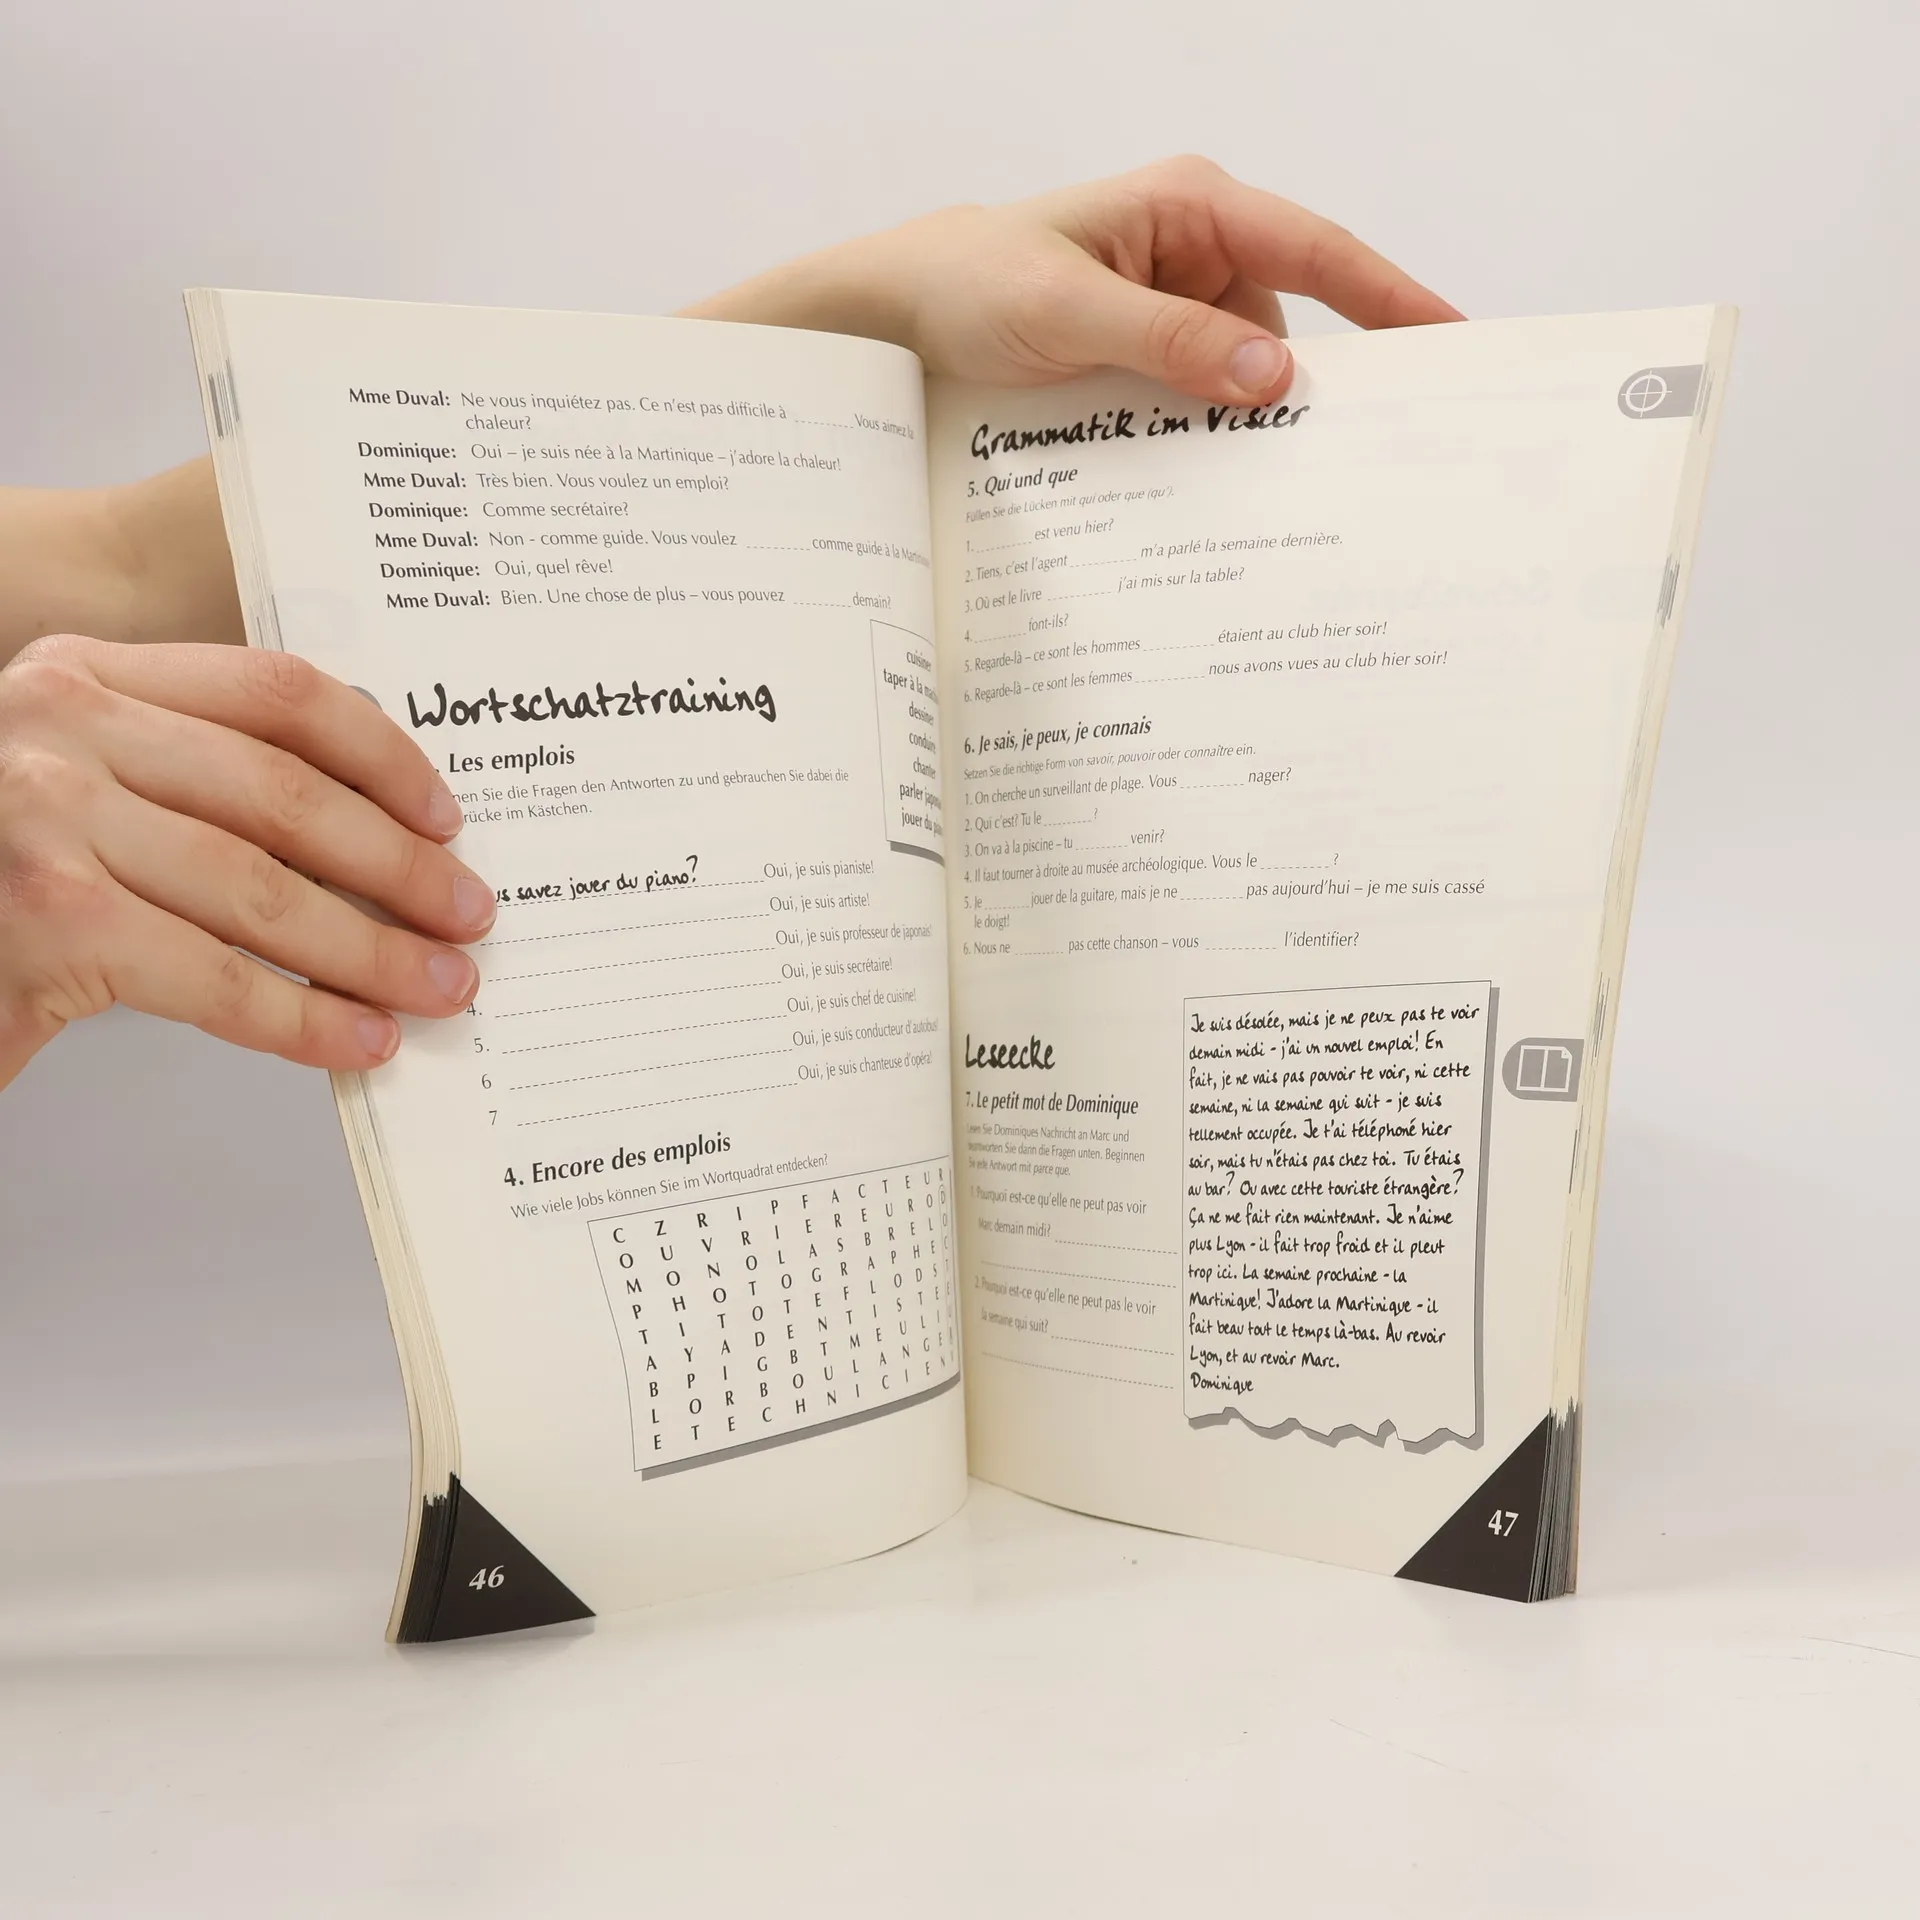 Mme Duval: Ne vous inquiétez pas. Ce n'est pas difficile à ........ Vous aimez la
chaleur?
Dominique: Oui – je suis née à la Martinique – j'adore la chaleur!
Mme Duval: Très bien. Vous voulez un emploi?
Dominique: Comme secrétaire?
Mme Duval: Non - comme guide. Vous voulez ........ comme guide à la
Dominique: Oui, quel rêve!
Mme Duval: Bien. Une chose de plus – vous pouvez ........ demain?
Wortschatztraining
Les emplois
Sie die Fragen den Antworten zu und gebrauchen Sie dabei die
im Kästchen.
cuisiner
taper à la
dessiner
conduire
chanter
parler
jouer du
savez jouer du piano? Oui, je suis pianiste!
Oui, je suis artiste!
Oui, je suis professeur de japonais!
4. Oui, je suis secrétaire!
5. Oui, je suis chef de cuisine!
6 Oui, je suis conducteur d'autobus!
7 Oui, je suis chanteuse d'opéra!
4. Encore des emplois
Wie viele Jobs können Sie im Wortquadrat entdecken?
C Z R I P F A C T E U R
O U V R I E R E U R O D
M O N O L A S B R E L O
P H O T O G R A P H E C
T I T O T E F L O D S T
A Y A D E N T I S T E E
B P I G B T M E U L I U
L O R B O U L A N G E R
E T E C H N I C I E N
46
Grammatik im Visier
5. Qui und que
Füllen Sie die Lücken mit qui oder que (qu').
1. ........ est venu hier?
2. Tiens, c'est l'agent ........ m'a parlé la semaine dernière.
3. Où est le livre ........ j'ai mis sur la table?
4. ........ font-ils?
5. Regarde-là – ce sont les hommes ........ étaient au club hier soir!
6. Regarde-là – ce sont les femmes ........ nous avons vues au club hier soir!
6. Je sais, je peux, je connais
Setzen Sie die richtige Form von savoir, pouvoir oder connaître ein.
1. On cherche un surveillant de plage. Vous ........ nager?
2. Qui c'est? Tu le ........?
3. On va à la piscine – tu ........ venir?
4. Il faut tourner à droite au musée archéologique. Vous le ........?
5. Je ........ jouer de la guitare, mais je ne ........ pas aujourd'hui – je me suis cassé
le doigt!
6. Nous ne ........ pas cette chanson – vous ........ l'identifier?
Leseecke
7. Le petit mot de Dominique
Lesen Sie Dominiques Nachricht an Marc und
beantworten Sie dann die Fragen unten. Beginnen
Sie jede Antwort mit parce que.
1. Pourquoi est-ce qu'elle ne peut pas voir
Marc demain midi?
2. Pourquoi est-ce qu'elle ne peut pas le voir
la semaine qui suit?
Je suis désolée, mais je ne peux pas te voir
demain midi - j'ai un nouvel emploi! En
fait, je ne vais pas pouvoir te voir, ni cette
semaine, ni la semaine qui suit - je suis
tellement occupée. Je t'ai téléphoné hier
soir, mais tu n'étais pas chez toi. Tu étais
au bar? Ou avec cette touriste étrangère?
Ça ne me fait rien maintenant. Je n'aime
plus Lyon - il fait trop froid et il pleut
trop ici. La semaine prochaine - la
Martinique! J'adore la Martinique - il
fait beau tout le temps là-bas. Au revoir
Lyon, et au revoir Marc.
Dominique
47